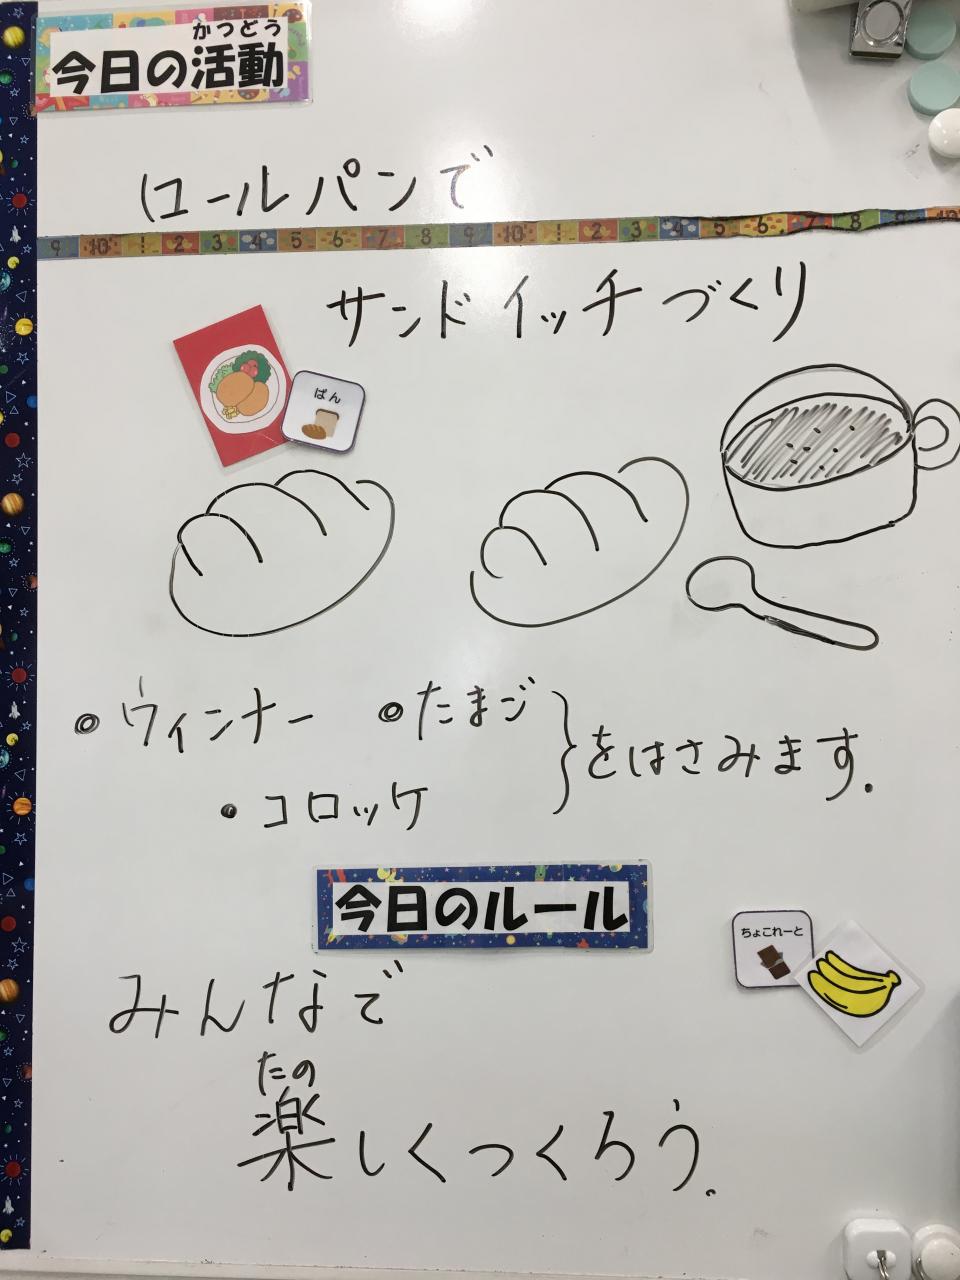 かつどう
今日の活動
ロールパンで
9 10 1 2 3 4 5 6 7 8 9 10 1 2 3 4 5 6 7 8 9 10
サンドイッチづくり
ぱん
◎ウィンナー ◎たまご
・コロッケ
をはさみます.
今日のルール
ちょこれーと
みんなで
たの
楽しくつくろう.